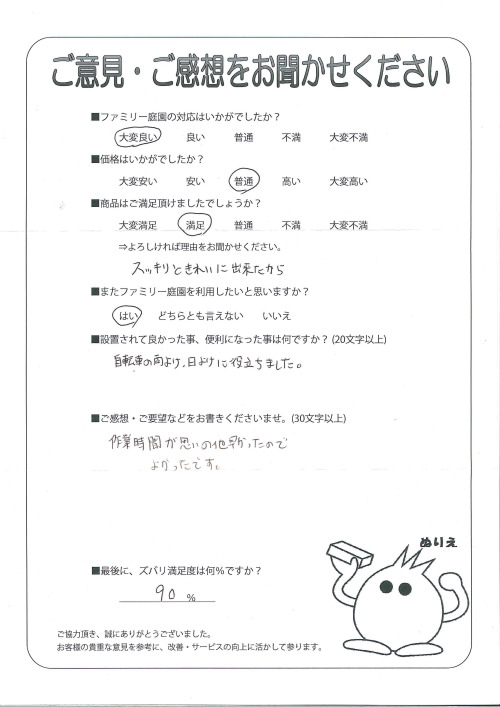 ご意見・ご感想をお聞かせください
■ファミリー庭園の対応はいかがでしたか?
大変良い 良い 普通 不満 大変不満
■価格はいかがでしたか?
大変安い 安い 普通 高い 大変高い
■商品はご満足頂けましたでしょうか?
大変満足 満足 普通 不満 大変不満
⇒よろしければ理由をお聞かせください。
スッキリときれいに出来たから
■またファミリー庭園を利用したいと思いますか?
はい どちらとも言えない いいえ
■設置されて良かった事、便利になった事は何ですか?(20文字以上)
自転車の雨よけ、日よけに役立ちました。
■ご感想・ご要望などをお書きくださいませ。(30文字以上)
作業時間が思いの他早かったので
よかったです。
ぬりえ
■最後に、ズバリ満足度は何%ですか?
90 %
ご協力頂き、誠にありがとうございました。
お客様の貴重な意見を参考に、改善・サービスの向上に活かして参ります。